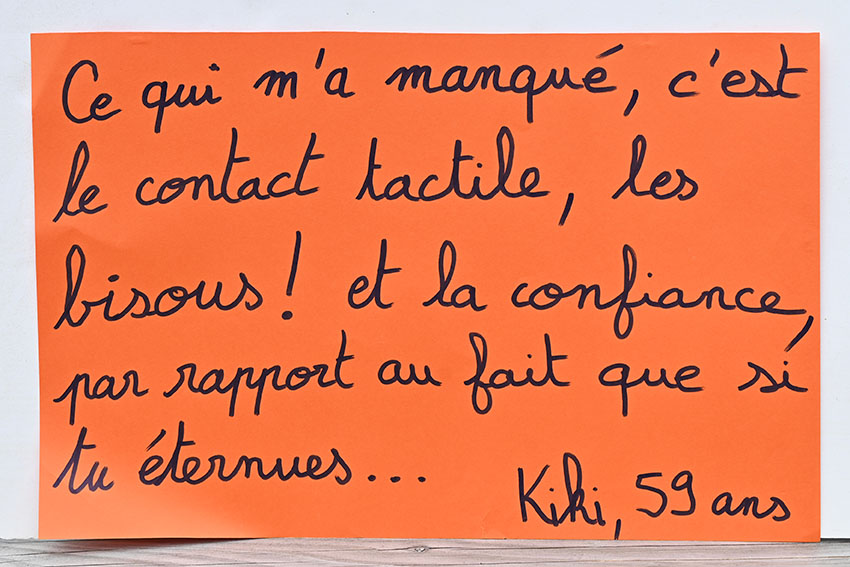 Ce qui m'a manqué, c'est
le contact tactile, les
bisous! et la confiance,
par rapport au fait que si
tu éternues...
Kiki, 59 ans